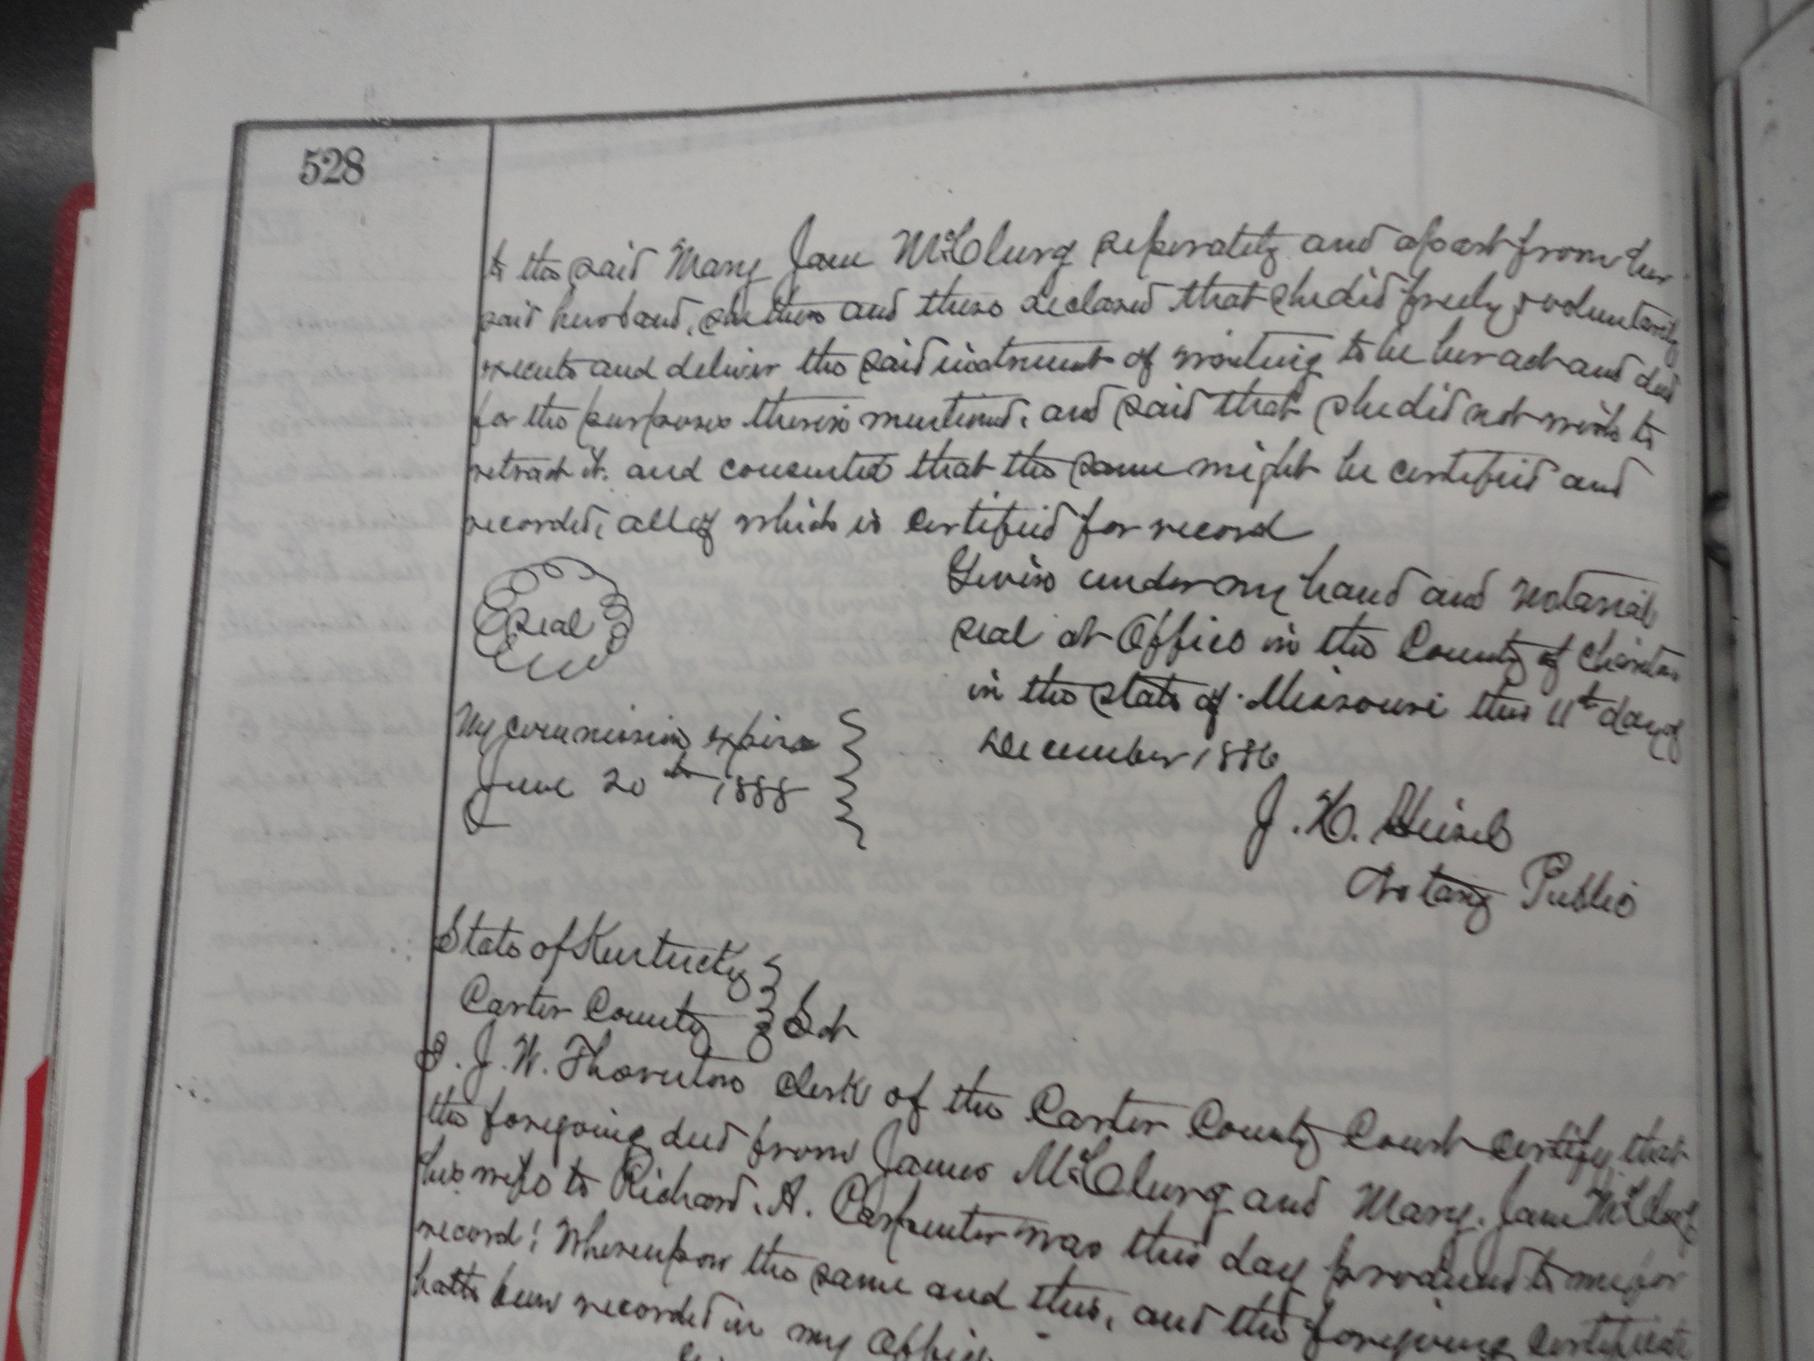 528
to the said Mary Jane McClurg seperately and apart from her
said husband, she then and there declared that she did freely & voluntarily
execute and deliver the said instrument of writing to be her act and deed
for the purposes therein mentioned, and said that she did not wish to
retract it. and consented that the same might be certified and
recorded, all of which is certified for record
Given under my hand and notarial
Seal
seal at office in the County of
in the State of Missouri this 11th day of
My commission expires
December 1886
June 20th 1888
J. H.
Notary Public
State of Kentucky
Carter County } Sct
I. J. W. Thornton Clerk of the Carter County Court certify that
the foregoing deed from James McClurg and Mary. Jane McClurg
his wife to Richard. A. Carpenter was this day produced to me for
record; Whereupon the same and this, and the foregoing certificate
hath been recorded in my office.